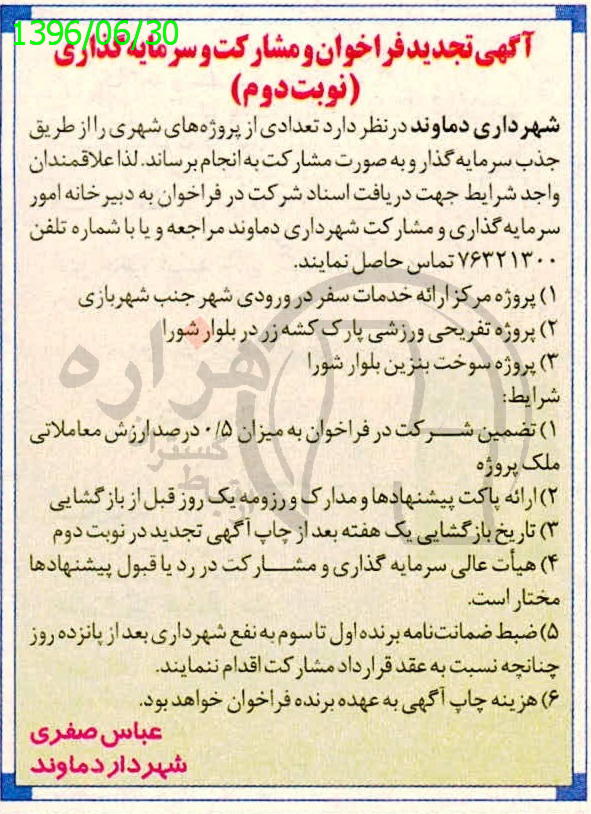 1396/06/30
آگهی تجدید فراخوان و مشارکت و سرمایه گذاری
(نوبت دوم)
شهرداری دماوند در نظر دارد تعدادی از پروژه‌های شهری را از طریق
جذب سرمایه گذار و به صورت مشارکت به انجام برساند. لذا علاقمندان
واجد شرایط جهت دریافت اسناد شرکت در فراخوان به دبیر خانه امور
سرمایه گذاری و مشارکت شهرداری دماوند مراجعه و یا با شماره تلفن
۷۶۳۲۱۳۰۰ تماس حاصل نمایند.
۱) پروژه مرکز ارائه خدمات سفر در ورودی شهر جنب شهربازی
۲) پروژه تفریحی ورزشی پارک کشه زر در بلوار شورا
۳) پروژه سوخت بنزین بلوار شورا
شرایط:
۱) تضمین شرکت در فراخوان به میزان ۰/۵ درصد ارزش معاملاتی
ملک پروژه
۲) ارائه پاکت پیشنهادها و مدارک و رزومه یک روز قبل از بازگشایی
۳) تاریخ بازگشایی یک هفته بعد از چاپ آگهی تجدید در نوبت دوم
۴) هیأت عالی سرمایه گذاری و مشارکت در رد یا قبول پیشنهادها
مختار است.
۵) ضبط ضمانت‌نامه برنده اول تا سوم به نفع شهرداری بعد از پانزده روز
چنانچه نسبت به عقد قرارداد مشارکت اقدام ننمایند.
۶) هزینه چاپ آگهی به عهده برنده فراخوان خواهد بود.
عباس صفری
شهردار دماوند
هزاره
گستران